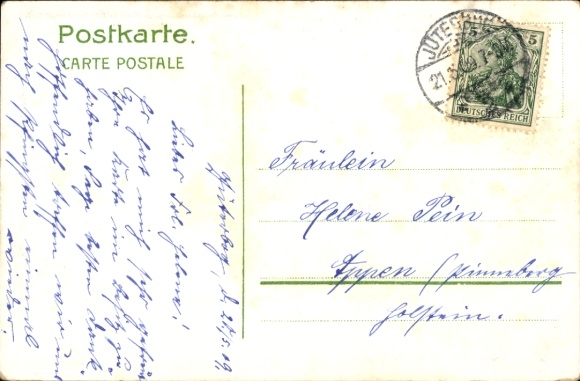 Postkarte.
CARTE POSTALE
JÜTERBOG
21.5.
5 5
DEUTSCHES REICH
Jüterbog, d. 21./5. 09.
Liebes Frl. Helene!
Es hat mich sehr gefreut
Ihre Karte im Besitz zu
haben, sage besten Dank.
Hoffendlich treffen wir uns
nach Pfingsten einmal
wieder.
Fräulein
Helene Pein
Appen / Pinneberg
Holstein.